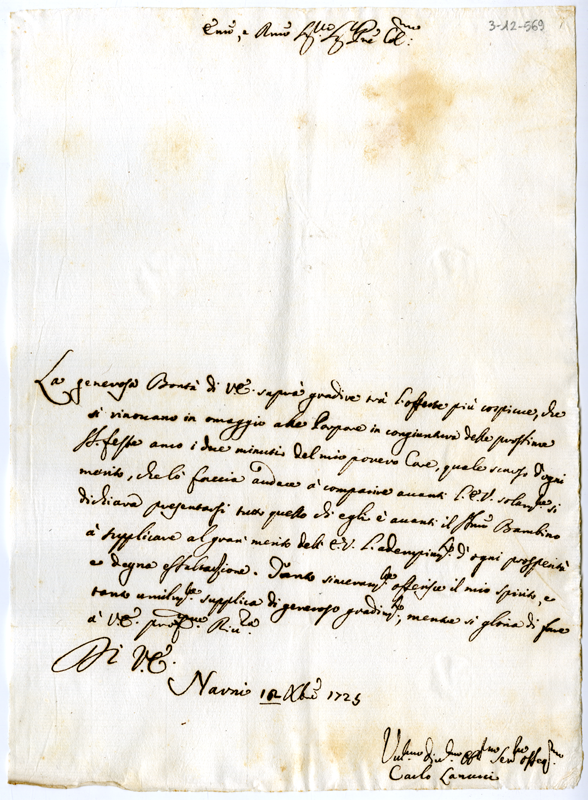 3-12-569
La generosa Bontà di V.E. saprà gradire trà l'offerte più cospicue, che
si rinovano in omaggio alle in congiuntura delle prossime
S.te feste anco i due minutis del mio povero Core, quale scarso d'ogni
merito, che lò faccia audace à comparire avanti l'E.V. solam.te si
dichiara presentarsi tutto quello di egli è avanti il S.mo Bambino
à supplicare al gran merito dell'E.V. l'adempim.to d'ogni prosperità
e degna essaltassione. Tanto sinceram.te offerisce il mio spirito, e
tanto umilm.te supplica di generoso gradim.to, mentre si gloria di fare
à V.E. prof.ma Riv.za
Di V.E.
Narni 12 Xbre 1725
Carlo